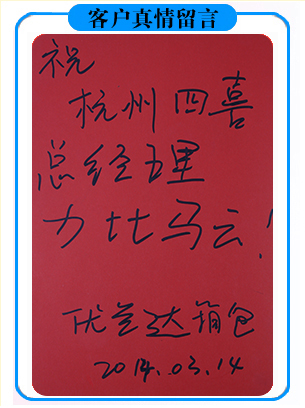 客户真情留言
祝
杭州四喜
总经理
力比马云！
优兰达箱包
2014.03.14